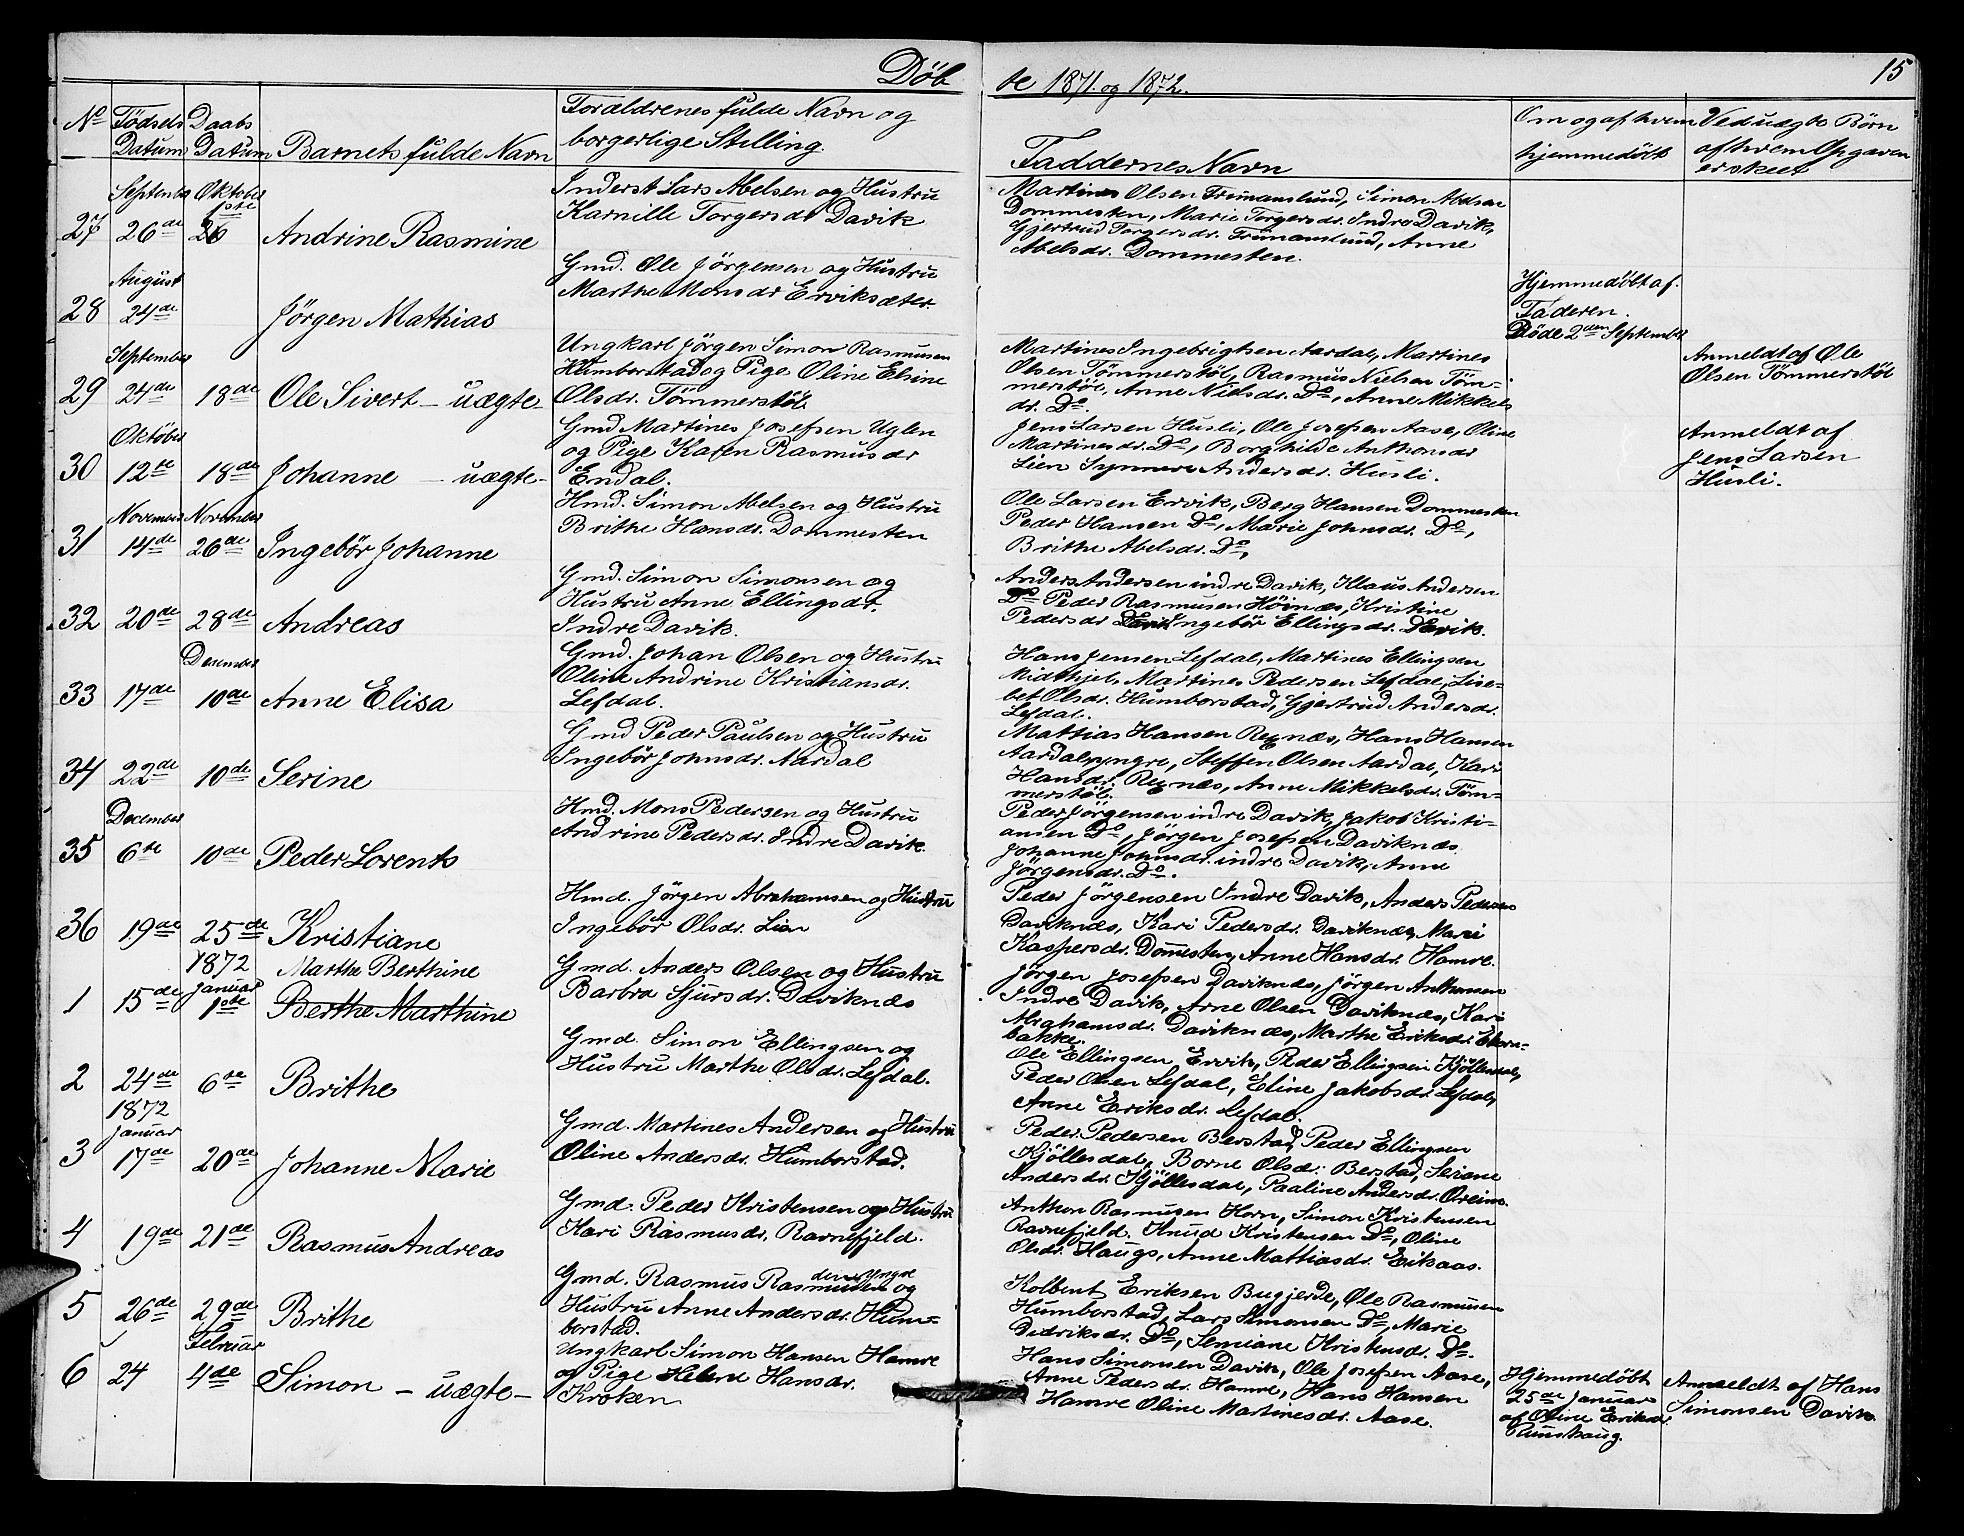 Döbte 1871. og 1872.
15
No
Födsels Datum
Daabs Datum
Barnets fulde Navn
Forældrenes fulde Navn og
borgerlige Stilling.
Faddernes Navn
Om og af hvem
hjemmedöbt
Ved uægte Börn
af hvem Opgaven
er skeet
September Oktober
27 26de 1ste Andrine Rasmine
Inderst Lars Abelsen og Hustru
Karnille Torgersdr Davik
Martines Olsen Frimanslund, Simon Abelsen
Dommesten, Marie Torgersdr. Indre Davik,
Gjertrud Torgersdr. Frimanslund, Anne
Abelsdr. Dommesten.
August
28 24de Jörgen Mathias
Gmd. Ole Jörgensen og Hustru
Marthe Monsdr Erviksæter.
Hjemmedöbt af
Faderen.
Döde 2den September
September
29 24de 18de Ole Sivert – uægte –
Ungkarl Jörgen Simon Rasmusen
Humborstad og Pige Oline Elsine
Olsdr. Tömmerstöl
Martines Ingebrigtsen Aardal, Martines
Olsen Tömmerstöl, Rasmus Nielsen Töm-
merstöl, Anne Nielsdr. Do, Anne Mikkels
dr. Do.
Anmeldt af Ole
Olsen Tömmerstöl
Oktober
30 12te 18de Johanne – uægte –
Gmd Martines Josefsen Uglen
og Pige Karen Rasmusdr
Endal.
Jens Larsen Husli, Ole Josefsen Aase, Oline
Martinesdr. Do, Borghilde Anthonsdr
Lien Synneve Andersdr. Husli.
Anmeldt af
Jens Larsen
Husli.
November November
31 14de 26de Ingebör Johanne
Hmd. Simon Abelsen og Hustru
Brithe Hansdr. Dommesten
Ole Larsen Ervik, Berg Hansen Dommesten
Peder Hansen Do, Marie Johnsdr. Do,
Brithe Abelsdr. Do,
32 20de 28de Andreas
Gmd. Simon Simonsen og
Hustru Anne Ellingsdr.
Indre Davik.
Anders Andersen indre Davik, Klaus Andersen
Do Peder Rasmusen Hövnæs, Kristine
Pedersdr Davik Ingebör Ellingsdr. Davik.
Desember
33 17de 10de Anne Elisa
Gmd. Johan Olsen og Hustru
Oline Andrine Kristiansdr.
Lefdal.
Hans Jensen Lefdal, Martines Ellingsen
Midthjel, Martines Pedersen Lefdal, Lise-
bet Olsdr. Humborstad, Gjertrud Andersdr.
Lefdal.
34 22de 10de Serine
Gmd Peder Paulsen og Hustru
Ingebör Johnsdr. Aardal
Mattias Hansen Rexnæs, Hans Hansen
Aardal yngre, Steffen Olsen Aardal, Kari
Hansdr. Rexnæs, Anne Mikkelsdr. Töm-
merstöl.
December
35 6te 10de Peder Lorents
Hmd. Mons Pedersen og Hustru
Andrine Pedersdr. Indre Davik
Peder Jörgensen indre Davik, Jakob Kristi-
ansen Do, Jörgen Josefsen Daviknæs
Johanne Johnsdr. indre Davik, Anne
Jörgensdr. Do.
36 19de 25de Kristiane
Hmd. Jörgen Abrahamsen og Hustru
Ingebör Olsdr. Lien
Peder Jörgensen Indre Davik, Anders Pedersen
Daviknæs, Kari Pedersdr. Daviknæs, Marie
Kaspersdr. Domesten, Anne Hansdr. Hamre.
1872 Marthe Berthine
Januar
1 15de 1ste Berthe Marthine
Gmd. Anders Olsen og Hustru
Barbra Sjursdr. Daviknæs
Jörgen Josefsen Daviknæs, Jörgen Anthonsen
Indre Davik, Arne Olsen Daviknæs, Kari
Daviknæs, Marthe Eriksdr.
bakke.
2 24de 6te Brithe
Gmd. Simon Ellingsen og
Hustru Marthe Olsdr. Lefdal.
Ole Ellingsen Ervik, Peder Ellingsen Kjöllesdal,
Peder Olsen Lefdal, Eline Jakobsdr. Lefdal,
Anne Eriksdr. Lefdal.
1872
Januar
3 17de 20de Johanne Marie
Gmd. Martines Andersen og Hustru
Oline Andersdr. Humborstad.
Peder Pedersen Berstad, Peder Ellingsen
Kjöllesdal, Borne Olsdr. Berstad, Seriane
Andersdr. Kjöllesdal, Pauline Andersdr. Oreim.
4 19de 21de Rasmus Andreas
Gmd. Peder Kristensen og Hustru
Kari Rasmusdr. Ravnefjeld.
Anthon Rasmusen Horn, Simon Kristensen
Ravnefjeld. Knud Kristensen Do, Oline
Olsdr. Haugs, Anne Mattiasdr. Eikaas.
5 26de 29de Brithe
Gmd. Rasmus Rasmusen den Yngre og
Hustru Anne Andersdr. Hum-
borstad.
Kolbent Eriksen Bugjerde, Ole Rasmusen
Humborstad, Lars Simonsen Do, Marie
Didriksdr. Do, Semiane Kristensdr. Do.
Februar
6 24 4de Simon – uægte –
Ungkarl Simon Hansen Hamre
og Pige Helene Hansdr.
Kroken
Hans Simonsen Davik, Ole Josefsen Aase,
Anne Pedersdr. Hamre, Hans Hansen
Hamre Oline Martinesdr. Aase.
Hjemmedöbt
25de Januar
af Oline Eriksdr.
Anmeldt af Hans
Simonsen Davik.